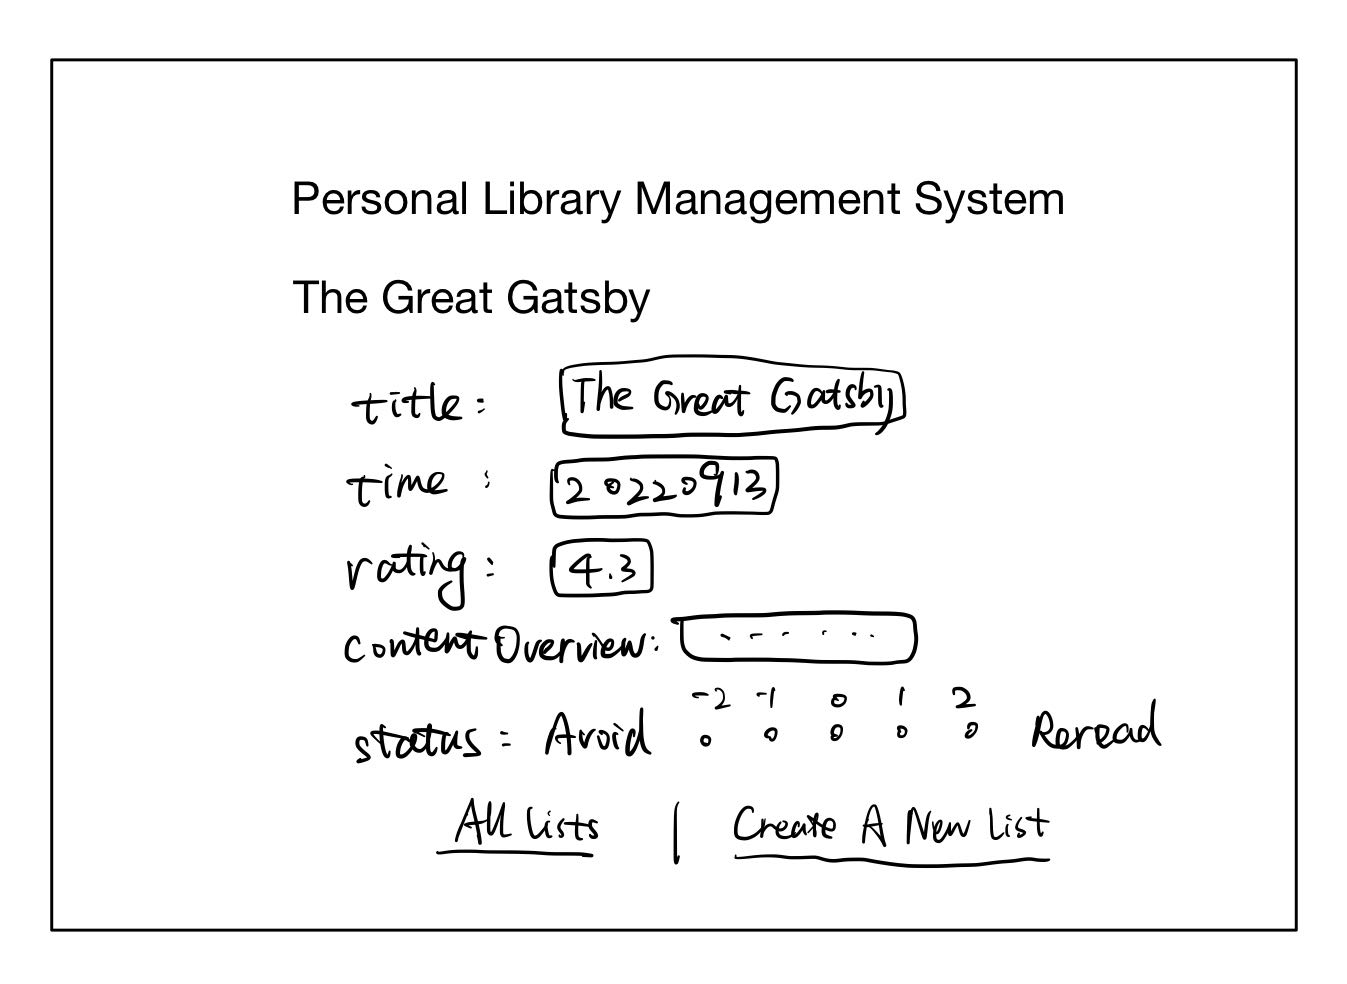 Personal Library Management System
The Great Gatsby
title: The Great Gatsby
time: 20220913
rating: 4.3
contentOverview: ------
-2 -1 0 1 2
status: Avoid o o o o o Reread
All Lists | Create A New List